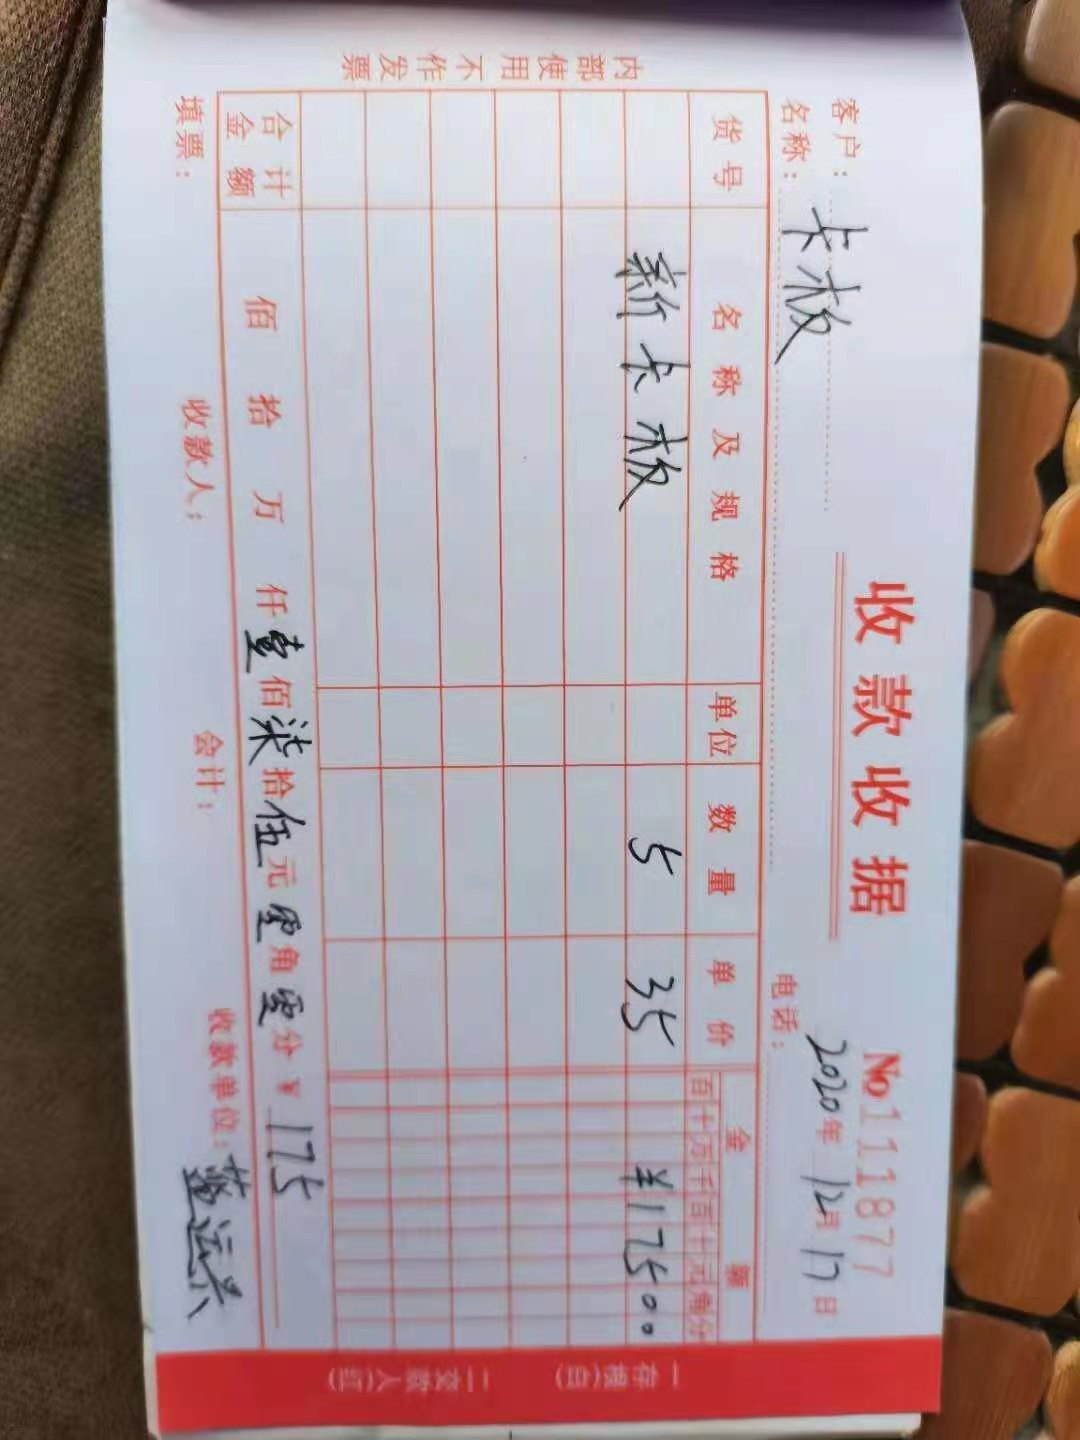 收款收据
No 1111877
客户名称：卡板
2020年12月17日
电话：
货号 名称及规格 单位 数量 单价 金额
百十万千百十元角分
新卡板 5 35 ¥17500
合计金额 佰 拾 万 仟壹佰柒拾伍元零角零分 ¥175
填票： 收款人： 会计： 收款单位：
内部使用不作发票
一存根(白) 二交款人(红)